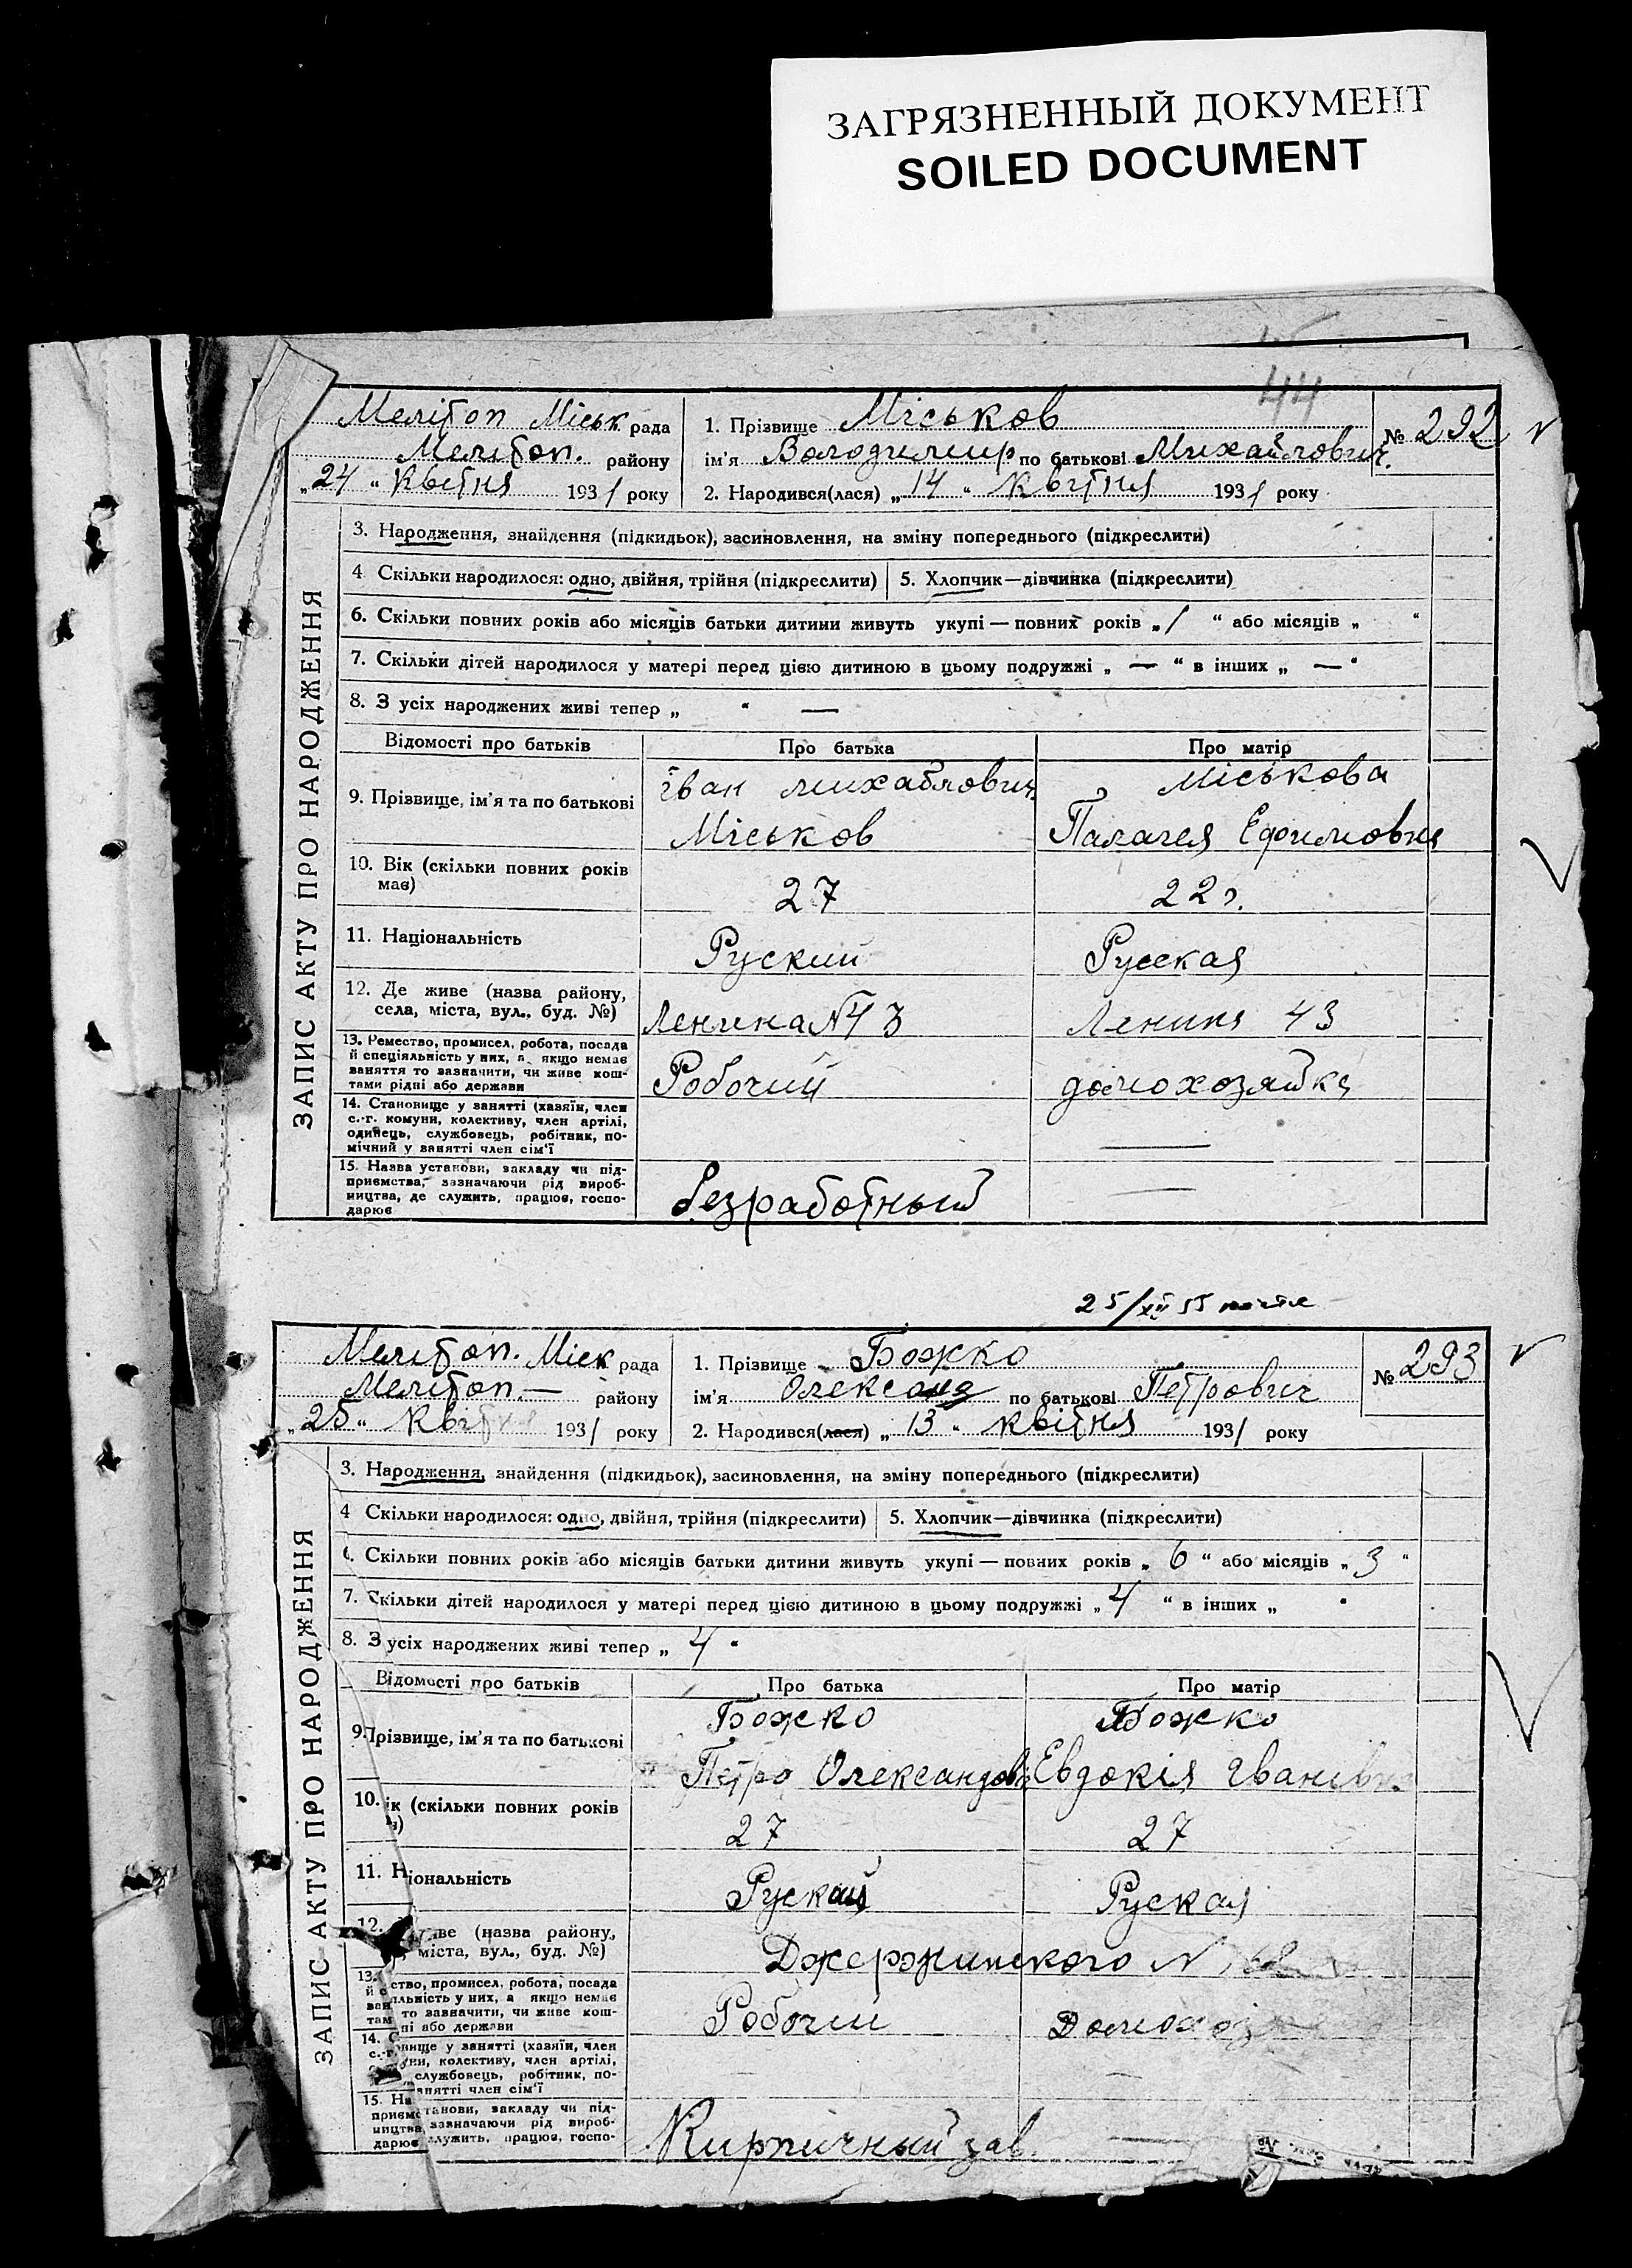 ЗАГРЯЗНЕННЫЙ ДОКУМЕНТ
SOILED DOCUMENT
44
Меліт​оп Міськ рада
Мелітоп. району
„24“ Квітня 1931 року
1. Прізвище Міськов
ім'я Володимир по батькові Михайлович.
2. Народився(лася) „14“ Квітня 1931 року
№ 292
ЗАПИС АКТУ ПРО НАРОДЖЕННЯ
3. Народження, знайдення (підкидьок), засиновлення, на зміну попереднього (підкреслити)
4 Скільки народилося: одно, двійня, трійня (підкреслити) 5. Хлопчик—дівчинка (підкреслити)
6. Скільки повних років або місяців батьки дитини живуть укупі — повних років „1“ або місяців „ “
7. Скільки дітей народилося у матері перед цією дитиною в цьому подружжі „ — “ в інших „ — “
8. З усіх народжених живі тепер „ “ —
Відомості про батьків Про батька Про матір
9. Прізвище, ім'я та по батькові
Іван Михайлович
Міськов
Міськова
Палагея Ефимовна
10. Вік (скільки повних років
має)
27
22 г.
11. Національність
Руский
Русская
12. Де живе (назва району,
села, міста, вул., буд. №)
Ленина N 43
Ленина 43
13. Ремество, промисел, робота, посада
й спеціяльність у них, а якщо немає
заняття то зазначити, чи живе кош-
тами рідні або держави
Робочий
домохозяйка
14. Становище у занятті (хазяїн, член
с.-г. комуни, колективу, член артілі,
одинець, службовець, робітник, по-
мічний у занятті член сім'ї
—
15. Назва установи, закладу чи під-
приємства, зазначаючи рід вироб-
ництва, де служить, працює, госпо-
дарює
безработный
—
25/XII 55
Мелітоп. Міск рада
Мелітоп.— району
„25“ Квітня 1931 року
1. Прізвище Божко
ім'я по батькові Петрович
2. Народився(лася) „13“ квітня 1931 року
№ 293
ЗАПИС АКТУ ПРО НАРОДЖЕННЯ
3. Народження, знайдення (підкидьок), засиновлення, на зміну попереднього (підкреслити)
4 Скільки народилося: одно, двійня, трійня (підкреслити) 5. Хлопчик—дівчинка (підкреслити)
6. Скільки повних років або місяців батьки дитини живуть укупі — повних років „6“ або місяців „3“
7. Скільки дітей народилося у матері перед цією дитиною в цьому подружжі „4“ в інших „ “
8. З усіх народжених живі тепер „4“
Відомості про батьків Про батька Про матір
9. Прізвище, ім'я та по батькові
Божко
Петро Олександов
Божко
Евдокія Іванівна
10. ік (скільки повних років
27
27
11. Н іональність
Руская
12. иве (назва району,
міста, вул., буд. №)
Джержинского N
13. ство, промисел, робота, посада
й с яльність у них, а якщо немає
зан то зазначити, чи живе кош-
там ні або держави
Робочий
14. С овище у занятті (хазяїн, член
с.-г. уни, колективу, член артілі,
службовець, робітник, по-
занятті член сім'ї
15. На станови, закладу чи під-
приємс зазначаючи рід вироб-
ництва, служить, працює, госпо-
дарює
Кирпичный зав.
—